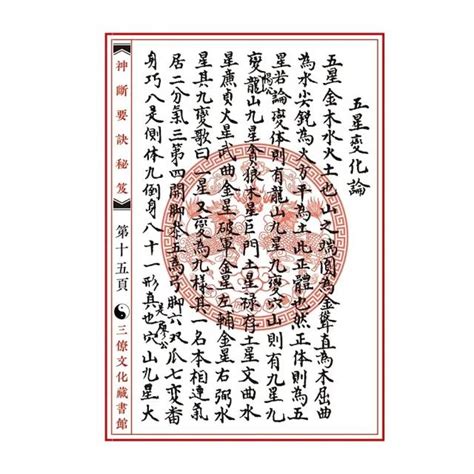 五星變化論
五星金木水火土也山之端圓為金聳直為木屈曲
為水尖銳為火方平為土此正體也然正體則有五
星若論變体則有龍山九星九變穴山則有九星九
變楊公龍山九星貪狼木星巨門土星祿存土星文曲水
星廉貞火星武曲金星破軍金星左輔金星右弼水
星其九變歌曰一星又變為九樣其一名本相達氣
居二分氣三第四開脚恭五為弓脚六双瓜七變番
身巧八是側体九倒身八十一形真也是廖公穴山九星大
神斷要訣秘笈
第十五頁
三僚文化藏書館